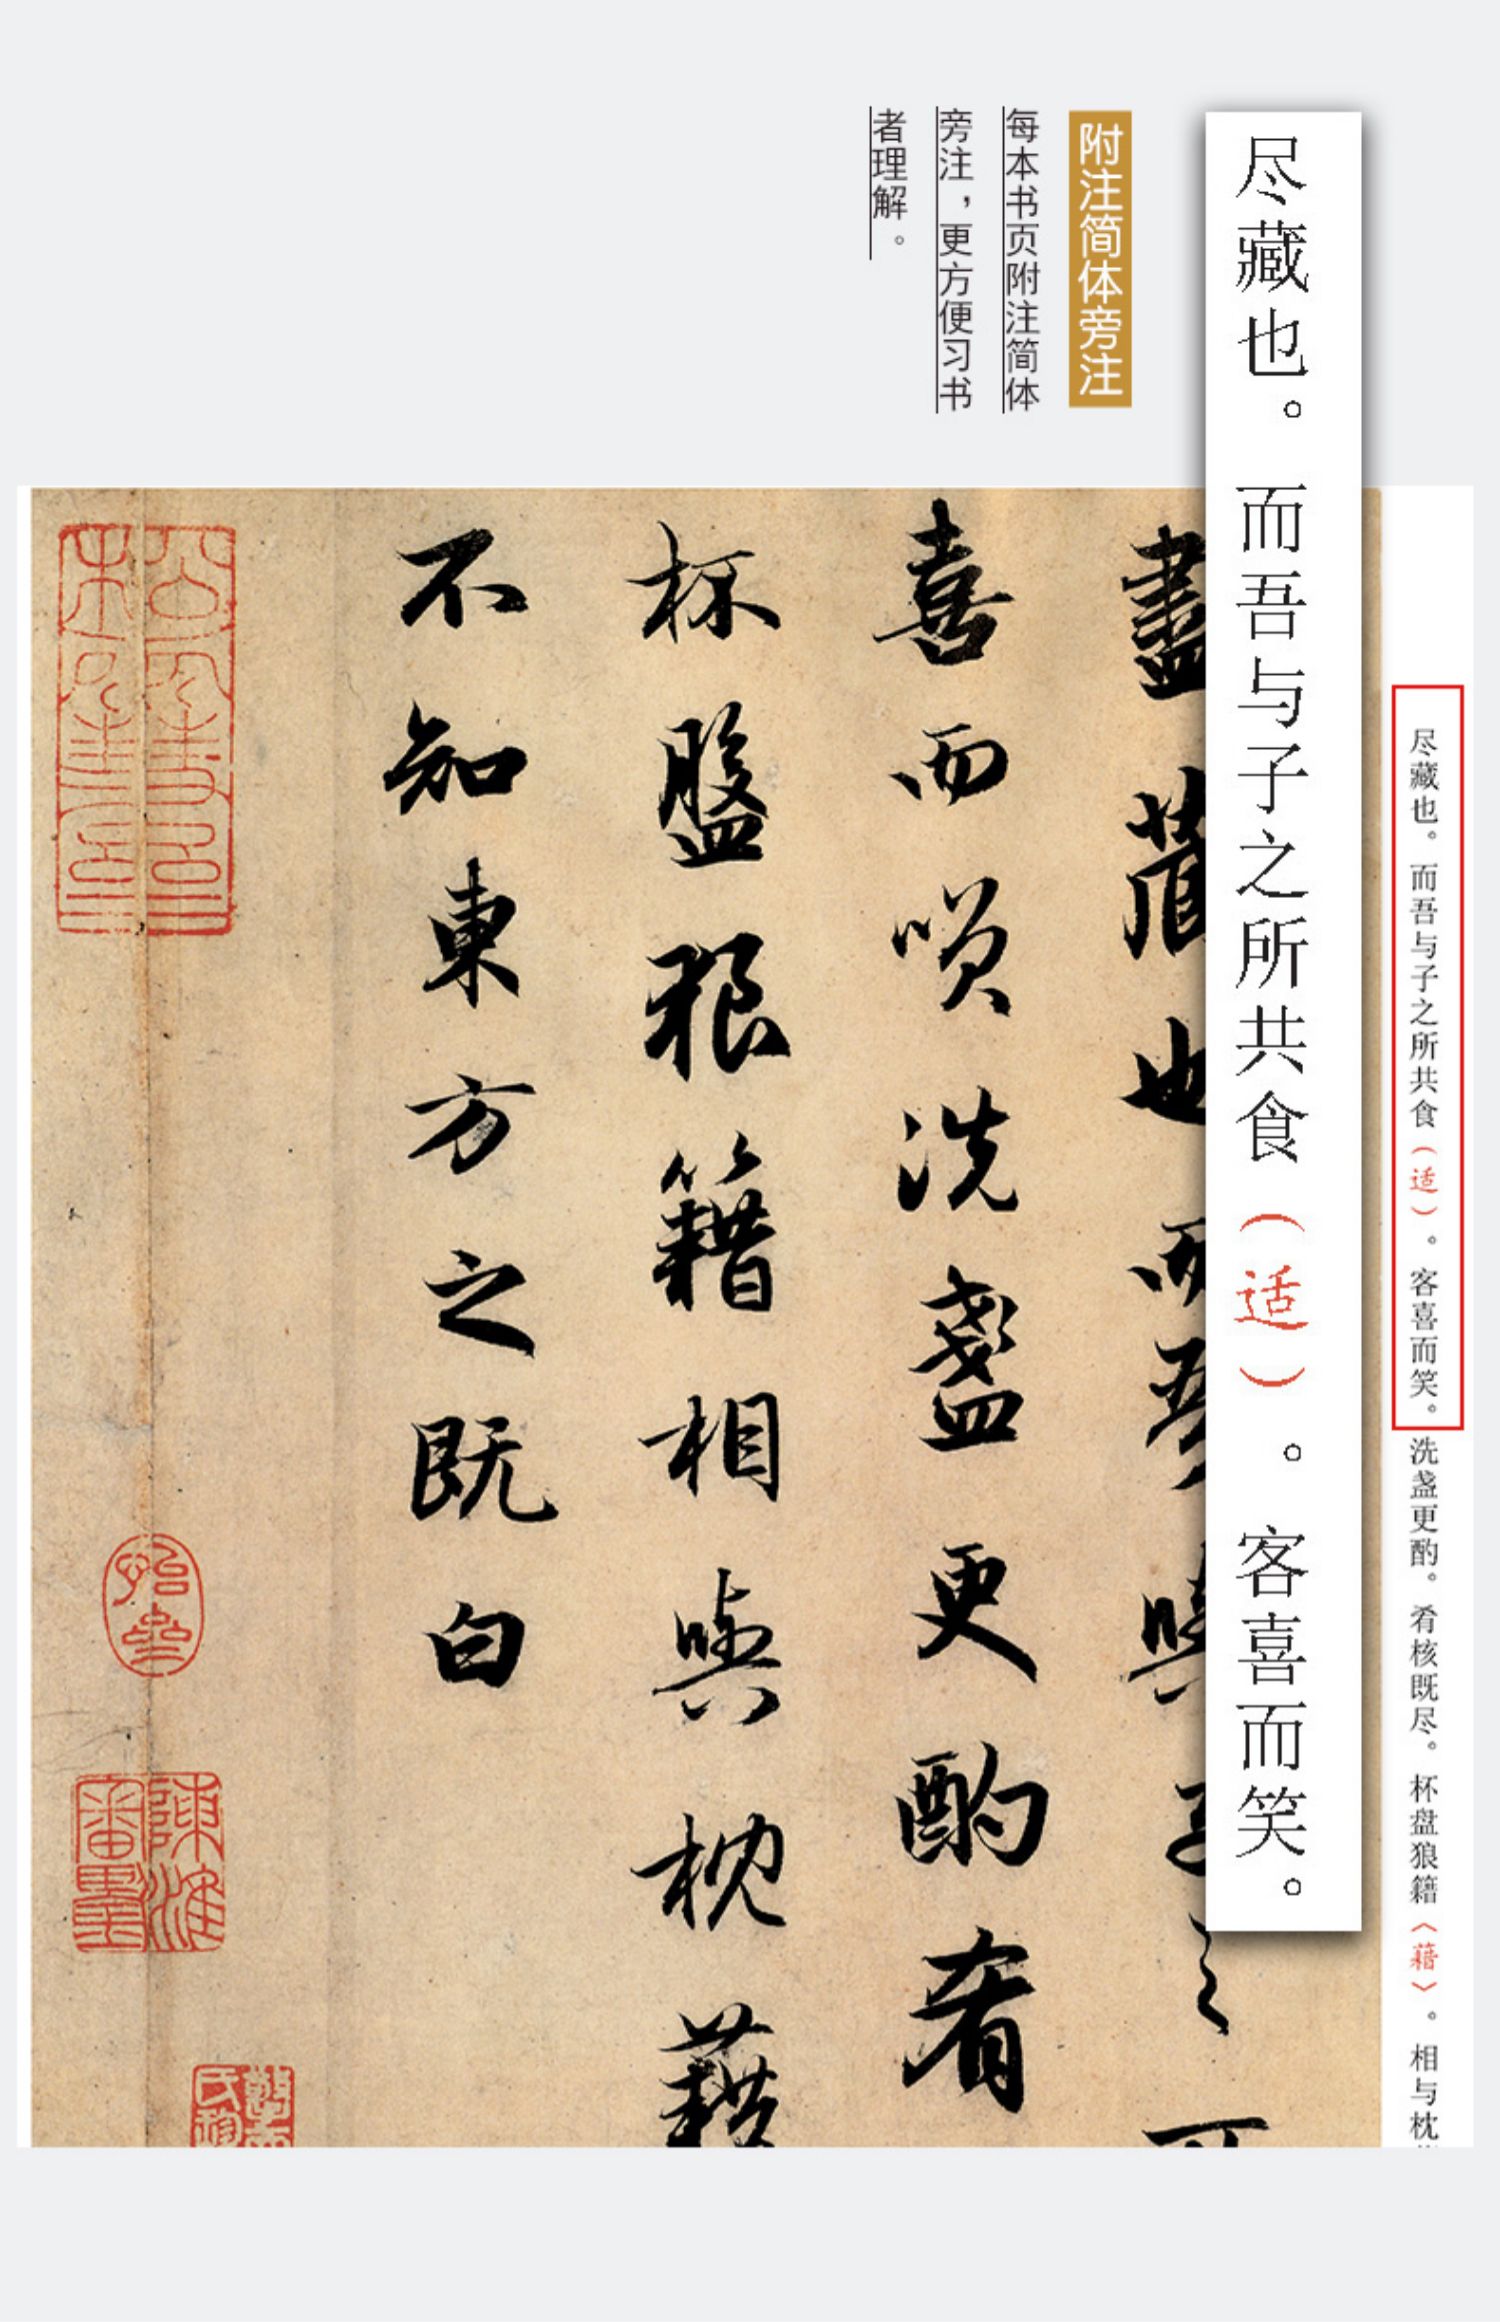 附注简体旁注
每本书页附注简体
旁注，更方便习书
者理解。
尽藏也。而吾与子之所共食（适）。客喜而笑。
尽藏也。而吾与子之所共食（适）。客喜而笑。洗盏更酌。肴核既尽。杯盘狼籍〈藉〉。相与枕
盡藏也而吾與子之
喜而唉洗盞更酌肴
杯盤狼籍相與枕藉
不知東方之既白